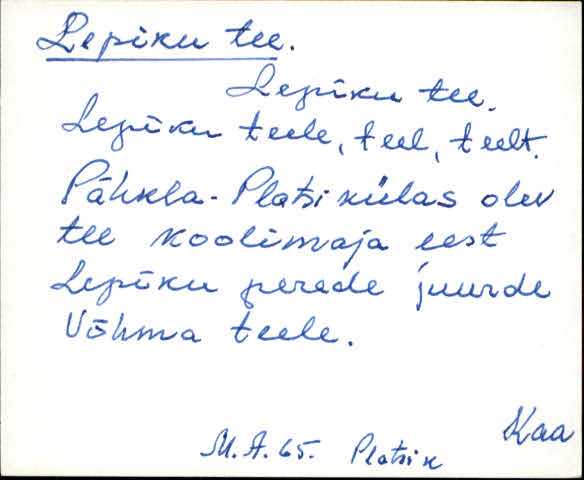 Lepiku tee.
Lepīku tee.
Lepīku teele, teel, teelt.
Pähkla-Platsi külas olev
tee koolimaja eest
Lepīku perede juurde
Võhma teele.
Kaa
M.A.65. Platsi k